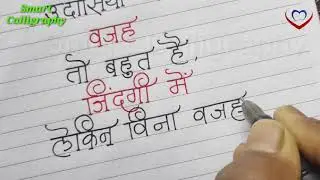 Smart
Calligraphy
उदासियों
वजह
तो बहुत है,
जिंदगी में
लेकिन विना वजह